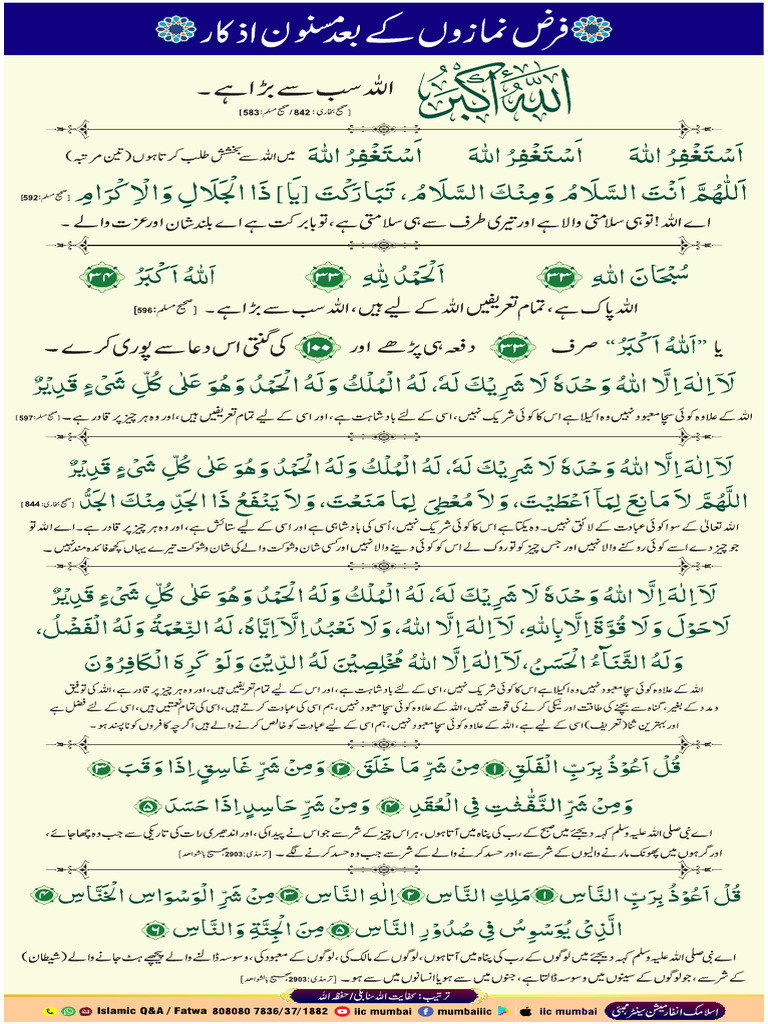 فرض نمازوں کے بعد مسنون اذکار
اَللّٰهُ اَكْبَرُ اللہ سب سے بڑا ہے ۔
[صحیح بخاری: 842/ صحیح مسلم: 583]
اَسْتَغْفِرُ اللهَ اَسْتَغْفِرُ اللهَ اَسْتَغْفِرُ اللهَ میں اللہ سے بخشش طلب کرتا ہوں (تین مرتبہ)
اَللّٰهُمَّ اَنْتَ السَّلَامُ وَمِنْكَ السَّلَامُ، تَبَارَكْتَ [يَا] ذَا الْجَلَالِ وَالْاِكْرَامِ [صحیح مسلم:592]
اے اللہ! تو ہی سلامتی والا ہے اور تیری طرف سے ہی سلامتی ہے، تو بابرکت ہے اے بلند شان اور عزت والے ۔
سُبْحَانَ اللهِ ۳۳ اَلْحَمْدُ لِلهِ ۳۳ اَللهُ اَكْبَرُ ۳۴
اللہ پاک ہے، تمام تعریفیں اللہ کے لیے ہیں، اللہ سب سے بڑا ہے۔ [صحیح مسلم: 596]
یا ”اَللهُ اَكْبَرُ“ صرف ۳۳ دفعہ ہی پڑھے اور ۱۰۰ کی گنتی اس دعا سے پوری کرے ۔
لَآ اِلٰهَ اِلَّا اللهُ وَحْدَهٗ لَا شَرِيْكَ لَهٗ، لَهُ الْمُلْكُ وَلَهُ الْحَمْدُ وَهُوَ عَلٰى كُلِّ شَىْءٍ قَدِيْرٌ
اللہ کے علاوہ کوئی سچا معبود نہیں وہ اکیلا ہے اس کا کوئی شریک نہیں، اسی کے لئے بادشاہت ہے، اور اسی کے لیے تمام تعریفیں ہیں، اور وہ ہر چیز پر قادر ہے ۔ [صحیح مسلم: 597]
لَآ اِلٰهَ اِلَّا اللهُ وَحْدَهٗ لَا شَرِيْكَ لَهٗ، لَهُ الْمُلْكُ وَلَهُ الْحَمْدُ وَهُوَ عَلٰى كُلِّ شَىْءٍ قَدِيْرٌ
اللّٰهُمَّ لَا مَانِعَ لِمَآ اَعْطَيْتَ، وَلَا مُعْطِىَ لِمَا مَنَعْتَ، وَلَا يَنْفَعُ ذَا الْجَدِّ مِنْكَ الْجَدُّ [صحیح بخاری: 844]
اللہ تعالیٰ کے سوا کوئی عبادت کے لائق نہیں۔ وہ یکتا ہے اس کا کوئی شریک نہیں، اُسی کی بادشاہی ہے اور اسی کے لیے ستائش ہے، اور وہ ہر چیز پر قادر ہے۔ اے اللہ تو
جو چیز دے اسے کوئی روکنے والا نہیں اور جس چیز کو تو روک لے اس کو کوئی دینے والا نہیں اور کسی شان و شوکت والے کی شان و شوکت تیرے یہاں کچھ فائدہ مند نہیں ۔
لَآ اِلٰهَ اِلَّا اللهُ وَحْدَهٗ لَا شَرِيْكَ لَهٗ، لَهُ الْمُلْكُ وَلَهُ الْحَمْدُ وَهُوَ عَلٰى كُلِّ شَىْءٍ قَدِيْرٌ
لَا حَوْلَ وَلَا قُوَّةَ اِلَّا بِاللهِ، لَآ اِلٰهَ اِلَّا اللهُ، وَلَا نَعْبُدُ اِلَّآ اِيَّاهُ، لَهُ النِّعْمَةُ وَلَهُ الْفَضْلُ،
وَلَهُ الثَّنَآءُ الْحَسَنُ، لَآ اِلٰهَ اِلَّا اللهُ مُخْلِصِيْنَ لَهُ الدِّيْنَ وَلَوْ كَرِهَ الْكَافِرُوْنَ
اللہ کے علاوہ کوئی سچا معبود نہیں وہ اکیلا ہے اس کا کوئی شریک نہیں، اسی کے لئے بادشاہت ہے، اور اس کے لیے تمام تعریفیں ہیں، اور وہ ہر چیز پر قادر ہے، اللہ کی توفیق
و مدد کے بغیر، گناہ سے بچنے کی طاقت اور نیکی کرنے کی قوت نہیں، اللہ کے علاوہ کوئی سچا معبود نہیں، ہم اسی کی عبادت کرتے ہیں، اسی کی تمام نعمتیں ہیں، اسی کے لئے فضل ہے
اور بہترین ثنا (تعریف) اسی کے لیے ہے، اللہ کے علاوہ کوئی سچا معبود نہیں، ہم اسی کے لیے عبادت کو خالص کرنے والے ہیں اگرچہ کافروں کو ناپسند ہو ۔
قُلْ اَعُوْذُ بِرَبِّ الْفَلَقِ ۱ مِنْ شَرِّ مَا خَلَقَ ۲ وَمِنْ شَرِّ غَاسِقٍ اِذَا وَقَبَ ۳
وَمِنْ شَرِّ النَّفّٰثٰتِ فِى الْعُقَدِ ۴ وَمِنْ شَرِّ حَاسِدٍ اِذَا حَسَدَ ۵
اے نبی صلی اللہ علیہ وسلم کہہ دیجئے میں صبح کے رب کی پناہ میں آتا ہوں، ہر اس چیز کے شر سے جو اس نے پیدا کی، اور اندھیری رات کی تاریکی سے جب وہ چھا جائے،
اور گرہوں میں پھونک مارنے والیوں کے شر سے، اور حسد کرنے والے کے شر سے جب وہ حسد کرنے لگے ۔ [ترمذی: 2903، صحیح بالشواہد]
قُلْ اَعُوْذُ بِرَبِّ النَّاسِ ۱ مَلِكِ النَّاسِ ۲ اِلٰهِ النَّاسِ ۳ مِنْ شَرِّ الْوَسْوَاسِ الْخَنَّاسِ ۴
الَّذِىْ يُوَسْوِسُ فِىْ صُدُوْرِ النَّاسِ ۵ مِنَ الْجِنَّةِ وَالنَّاسِ ۶
اے نبی صلی اللہ علیہ وسلم کہہ دیجئے میں لوگوں کے رب کی پناہ میں آتا ہوں، لوگوں کے مالک کی، لوگوں کے معبود کی، وسوسہ ڈالنے والے پیچھے ہٹ جانے والے (شیطان)
کے شر سے، جو لوگوں کے سینوں میں وسوسہ ڈالتا ہے، جنوں میں سے ہو یا انسانوں میں سے ہو ۔ [ترمذی: 2903، صحیح بالشواہد]
ترتیب: کفایت اللہ سنابلی/ حفظہ اللہ
Islamic Q&A / Fatwa 808080 7836/37/1882 iic mumbai mumbaiiic iic mumbai اسلامک انفارمیشن سینٹر ممبئی